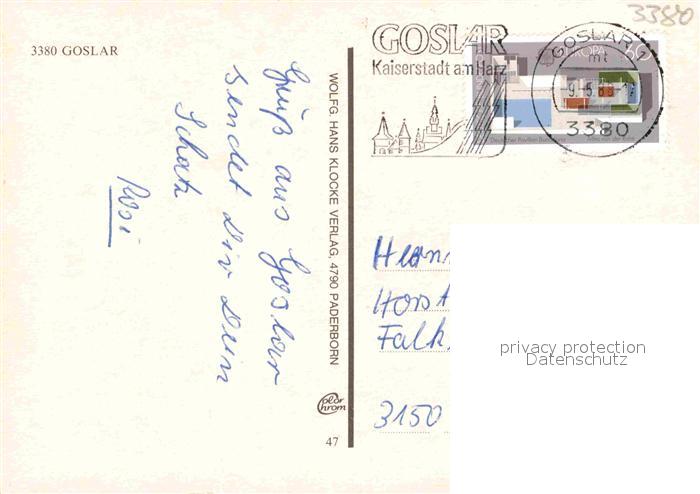 3380
3380 GOSLAR
Gruß aus Goslar
sendet Dir Dein
Schatz
Rosi
WOLFG. HANS KLOCKE VERLAG, 4790 PADERBORN
Color
Chrom
47
GOSLAR
Kaiserstadt am Harz
EUROPA 60
Deutscher Pavillon
GOSLAR 1
mt
9.5.88
3380
Herrn
Horst
Falk
3150
privacy protection
Datenschutz